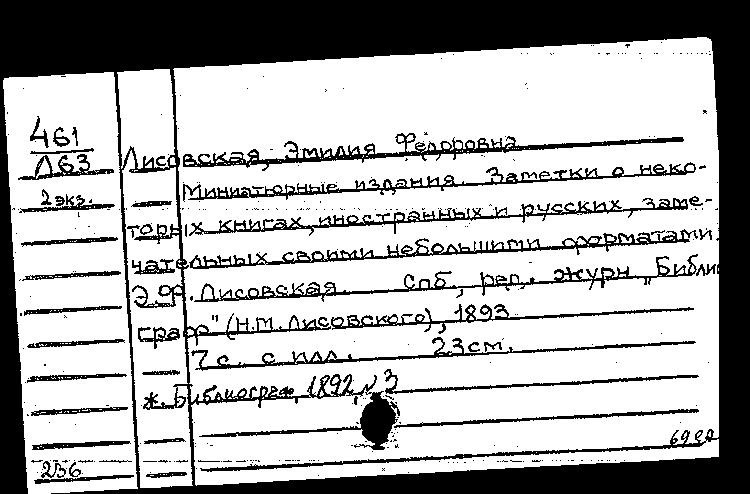 461
Л63
2 экз.
Лисовская, Эмилия Федоровна
Миниатюрные издания. Заметки о неко-
торых книгах, иностранных и русских, заме-
чательных своими небольшими форматами.
Э.Ф. Лисовская. Спб., ред. журн. "Библио
граф" (Н.М. Лисовского), 1893
7 с. с илл. 23см.
ж. Библиограф, 1892, №3
236